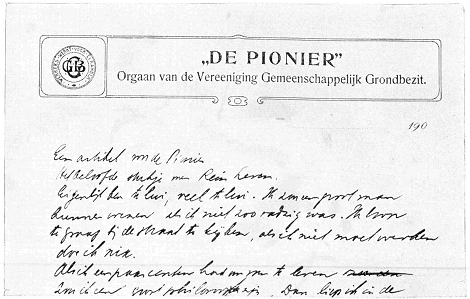 „DE PIONIER”
Orgaan van de Vereeniging Gemeenschappelijk Grondbezit.
190
Een artikel voor de Pionier
Het beloofde stukje over Rein Leven.
Eigenlijk ben te lui, veel te lui. Ik zou een groot man
kunnen wezen als ik niet zoo was. Ik
te graag bij de straat te kijken, als ik niet moet werken
doe ik niks.
Als ik een paar centen had om van te leven
zou ik een groot philosoof zijn. Dan liep ik in de